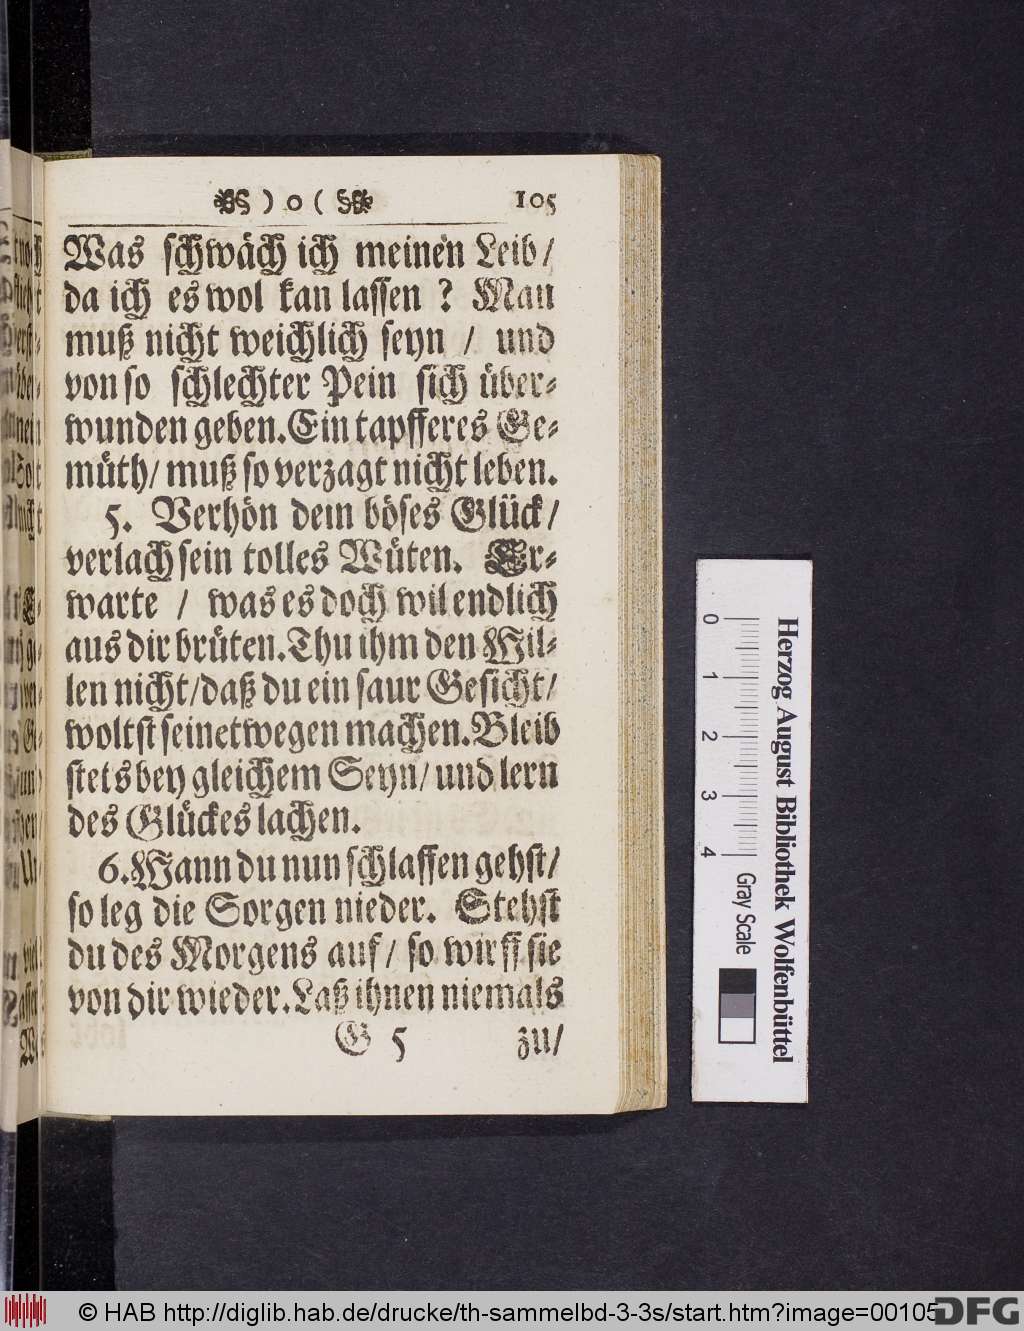 ) o ( 105
Was schwäch ich meinen Leib/
da ich es wol kan lassen? Man
muß nicht weichlich seyn / und
von so schlechter Pein sich über-
wunden geben. Ein tapfferes Ge-
müth/ muß so verzagt nicht leben.
5. Verhön dein böses Glück/
verlach sein tolles Wüten. Er-
warte / was es doch wil endlich
aus dir brüten. Thu ihm den Wil-
len nicht/ daß du ein saur Gesicht/
woltst seinetwegen machen. Bleib
stets bey gleichem Seyn/ und lern
des Glückes lachen.
6. Wann du nun schlaffen gehst/
so leg die Sorgen nieder. Stehst
du des Morgens auf/ so wirff sie
von dir wieder. Laß ihnen niemals
G 5 zu/
Herzog August Bibliothek Wolfenbüttel
0 1 2 3 4 Gray Scale
© HAB http://diglib.hab.de/drucke/th-sammelbd-3-3s/start.htm?image=00105
DFG